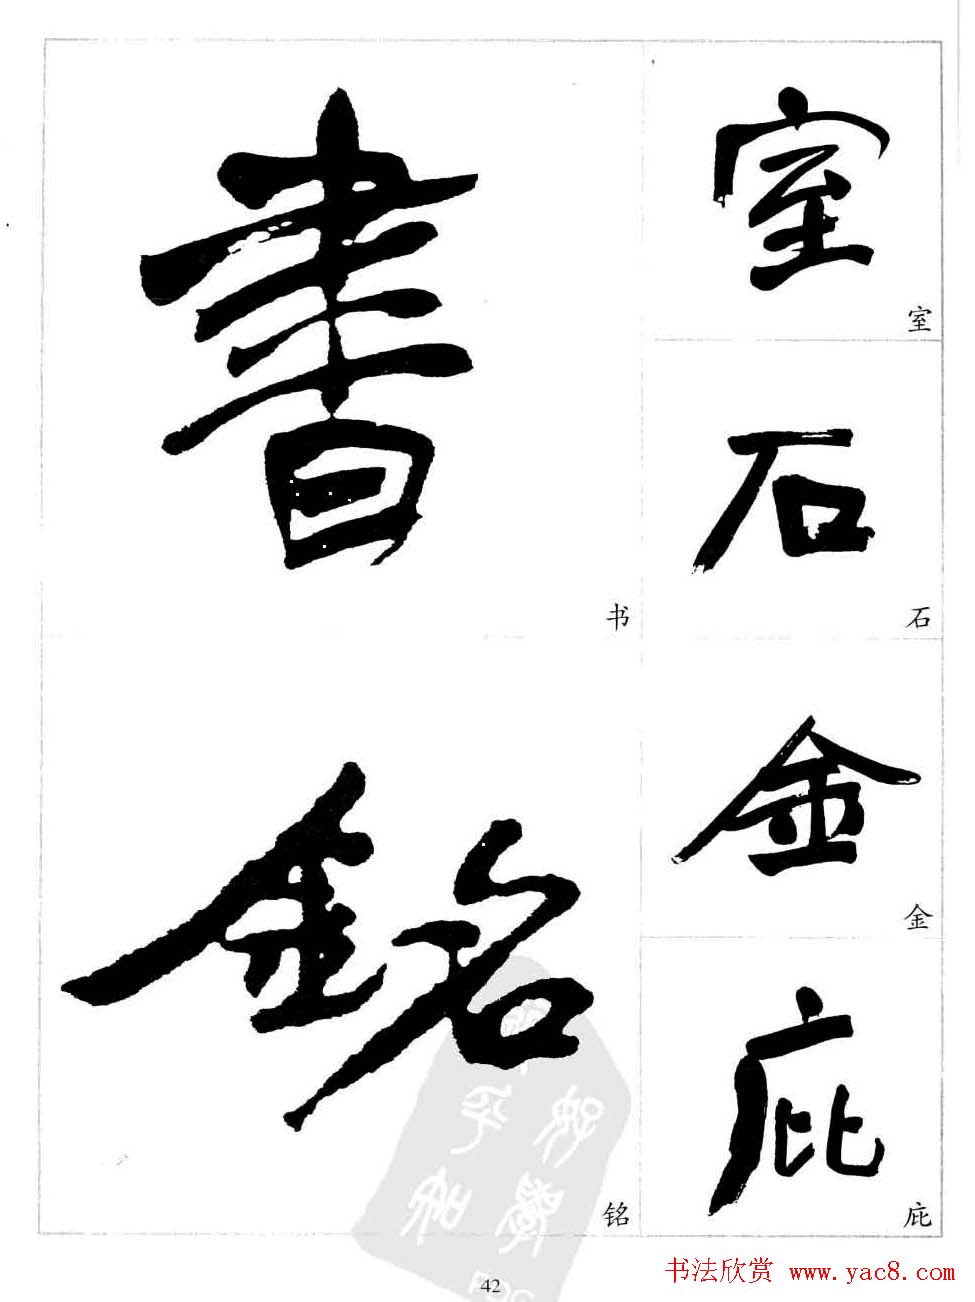 書
书
室
室
石
石
銘
铭
金
金
庇
庇
42
书法欣赏 www.yac8.com